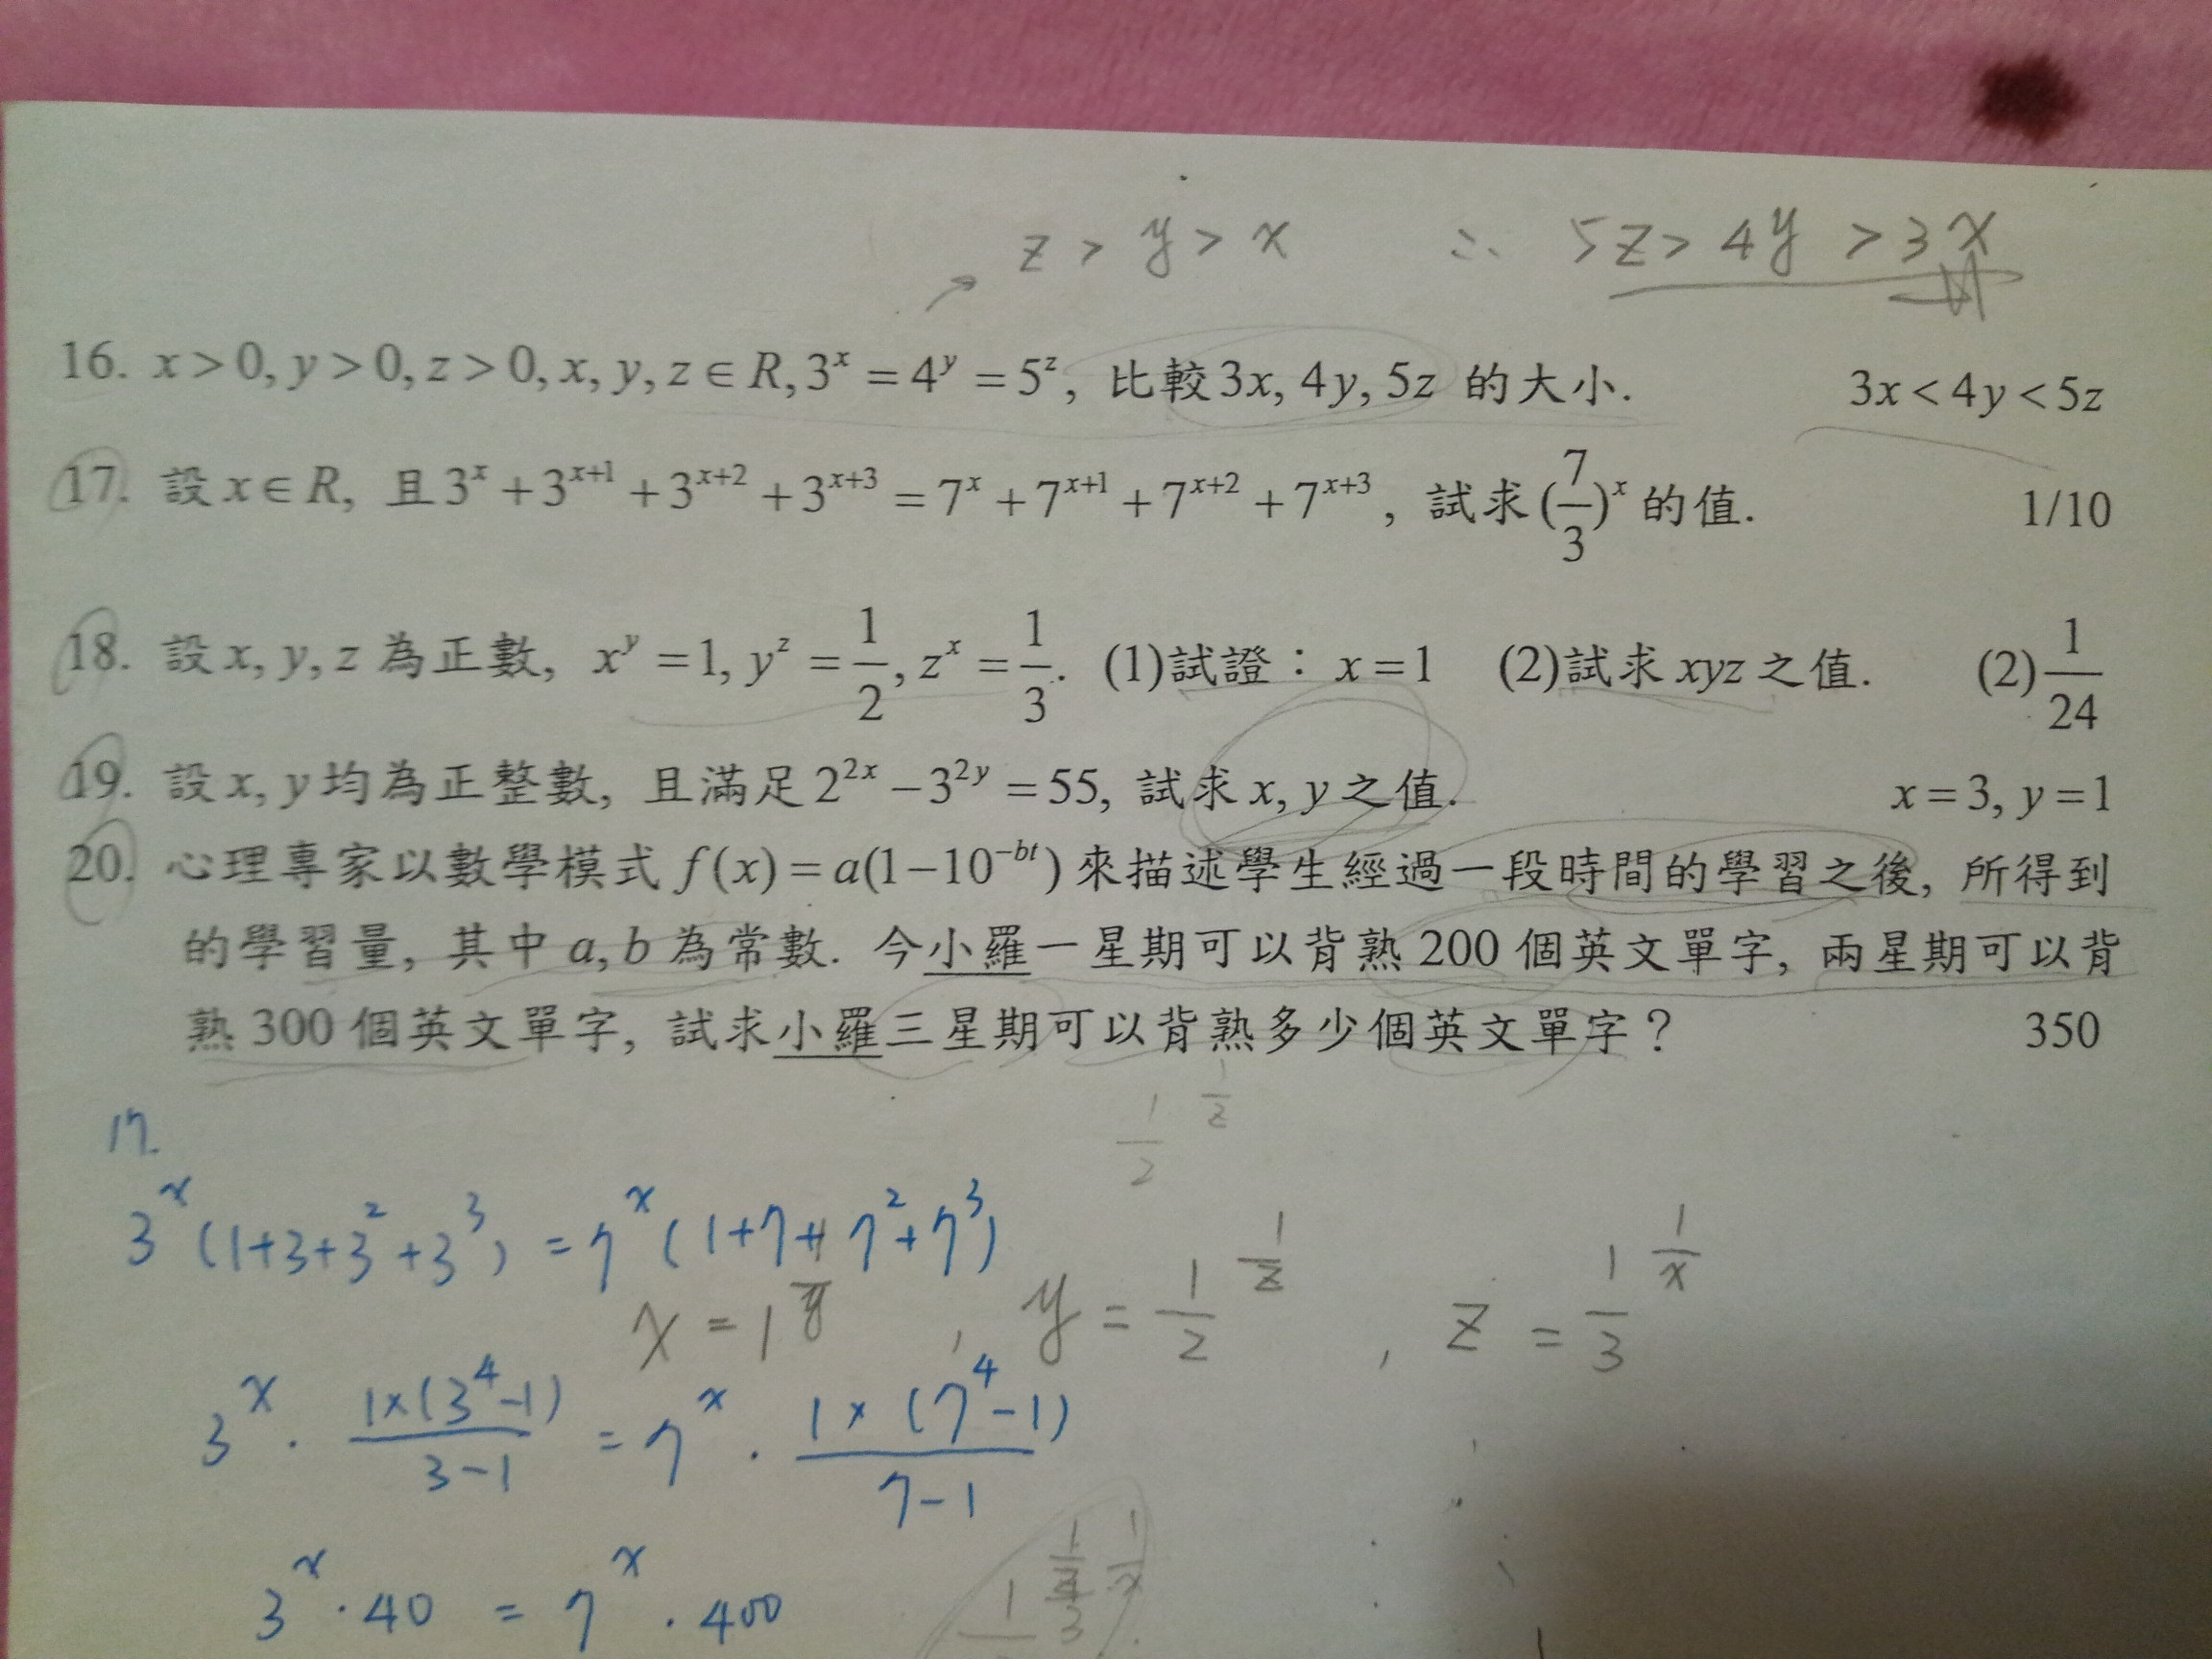 z > y > x ∴ 5z > 4y > 3x
16. x > 0, y > 0, z > 0, x, y, z ∈ R, 3^x = 4^y = 5^z, 比較3x, 4y, 5z 的大小. 3x < 4y < 5z
17. 設 x ∈ R, 且 3^x + 3^{x+1} + 3^{x+2} + 3^{x+3} = 7^x + 7^{x+1} + 7^{x+2} + 7^{x+3}, 試求(7/3)^x 的值. 1/10
18. 設 x, y, z 為正數, x^y = 1, y^z = 1/2, z^x = 1/3. (1)試證：x = 1 (2)試求 xyz 之值. (2) 1/24
19. 設 x, y 均為正整數, 且滿足 2^{2x} − 3^{2y} = 55, 試求 x, y 之值. x = 3, y = 1
20. 心理專家以數學模式 f(x) = a(1−10^{−bt}) 來描述學生經過一段時間的學習之後, 所得到
的學習量, 其中 a, b 為常數. 今小羅一星期可以背熟 200 個英文單字, 兩星期可以背
熟 300 個英文單字, 試求小羅三星期可以背熟多少個英文單字？ 350
1/2 1/z
17.
3^x (1+3+3^2+3^3) = 7^x (1+7+7^2+7^3)
x = 1^{1/y} , y = 1/2^{1/z} , z = 1/3^{1/x}
3^x · 1×(3^4−1)/3−1 = 7^x · 1×(7^4−1)/7−1
3^x · 40 = 7^x · 400